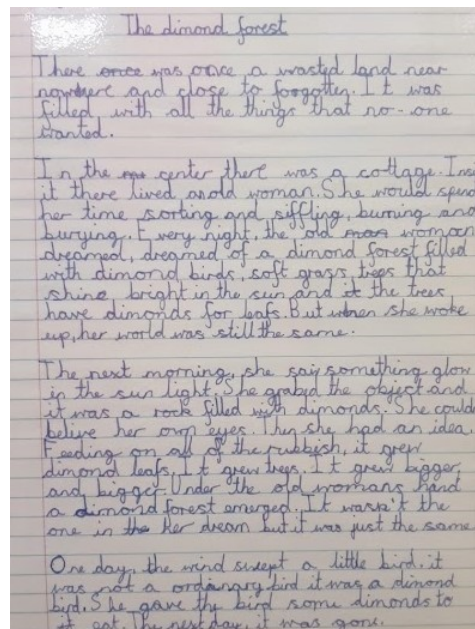 The dimond forest
There once was once a wasted land near
nowhere and close to forgotten. It was
filled with all the things that no-one
wanted.
In the center there was a cottage. Insi
it there lived an old woman. She would spend
her time sorting and siffling, burning and
burying. Every night, the old woman
dreamed, dreamed of a dimond forest filled
with dimond birds, soft grass, trees that
shine bright in the sun and the trees
have dimonds for leafs. But when she woke
up, her world was still the same.
The next morning, she say something glow
in the sun light. She grabed the object and
it was a rock filled with dimonds. She could
belive her own eyes. Then she had an idea.
Feeding on all of the rubbish, it grew
dimond leafs. It grew trees. It grew bigger
and bigger. Under the old womans hand
a dimond forest emerged. It wasn't the
one in her dream but it was just the same
One day, the wind swept a little bird, it
was not a ordanary bird it was a dimond
bird. She gave the bird some dimonds to
it eat. The next day, it was gone.